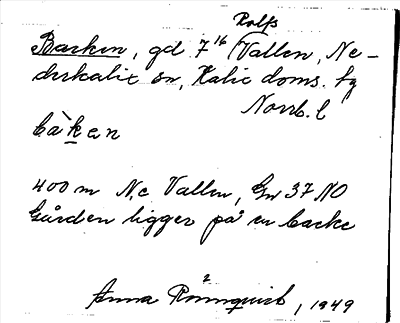 Rolfs
Backen, gd 7¹⁶ Vallen, Ne-
derkalix sn, Kalix doms. hg
Norrb. l
bàken
400 m N, e Vallen, Gn 37 NO
Gården ligger på en backe
Anna Rönnquist, 1949